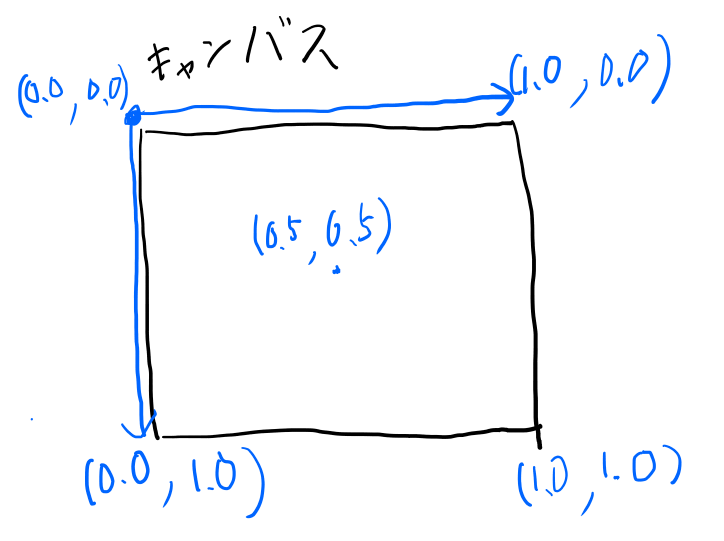 キャンバス
(0.0, 0.0)
(1.0, 0.0)
(0.5, 0.5)
(0.0, 1.0)
(1.0, 1.0)